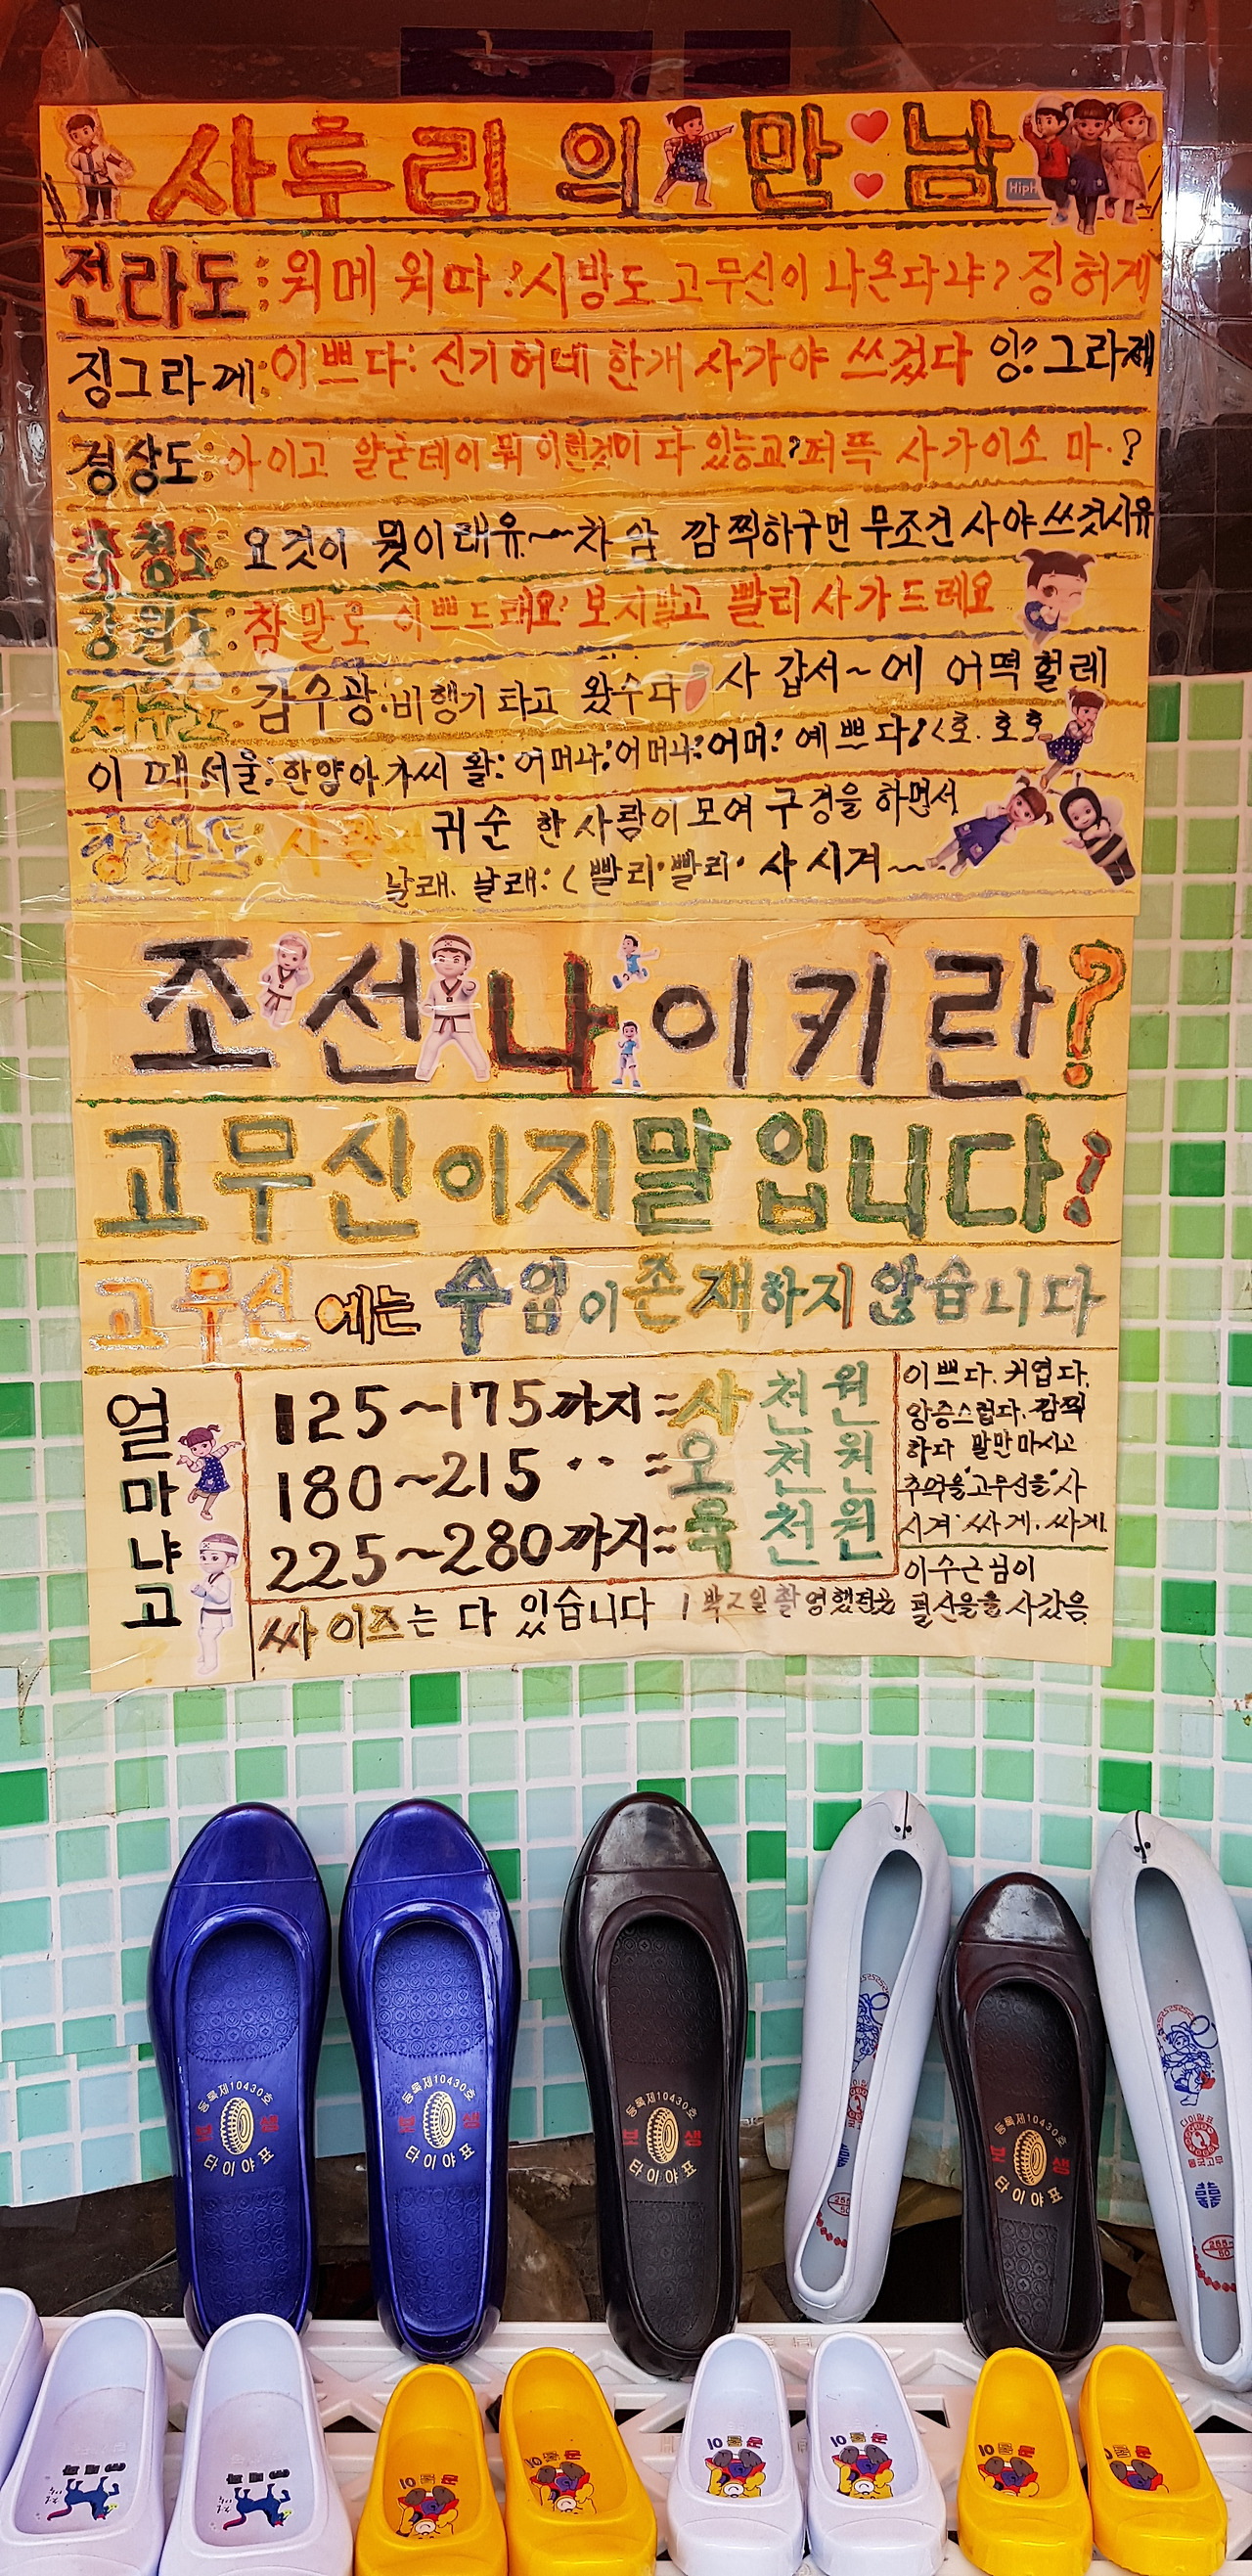 사투리의 만남
HipH
전라도: 워메 워따! 시방도 고무신이 나온다냐? 징허게
징그라게: 이쁘다: 신기허네 한개 사가야 쓰겄다 잉? 그라제
경상도: 아이고 얄굳데이 뭐 이런것이 다 있능교? 퍼뜩 사가이소 마.?
충청도: 요것이 뭣이래유~~ 차암 깜찍하구먼 무조건 사야쓰것시유
강원도: 참말로 이쁘드래요? 보시말고 빨리 사가드레요
제주도: 감수광: 비행기 타고 왔수다 사 갑서~에 어떡 헐레
이 때 서울: 한양아가씨 왈: 어머나: 어머나: 어머: 예쁘다! <호. 호호
강화도: 귀순 한 사람이 모여 구경을 하면서
날래. 날래: < 빨리·빨리· 사시겨~~
조선나이키란?
고무신이지말입니다!
고무신에는 수입이 존재하지 않습니다
얼마냐고
125~175까지=사천원
180~215 〃 =오천원
225~280까지=육천원
싸이즈는 다 있습니다
이쁘다. 귀엽다.
앙증스럽다. 깜찍
하다 말만 마시고
추억을 고무신을 사
시겨 싸게. 싸게.
1박2일 촬영했던곳
이수근님이
털신을을 사갔음
등록제10430호
보 생
타이야표
등록제10430호
보 생
타이야표
등록제10430호
보 생
타이야표
등록제10430호
보 생
타이야표
다이알표
동국고무